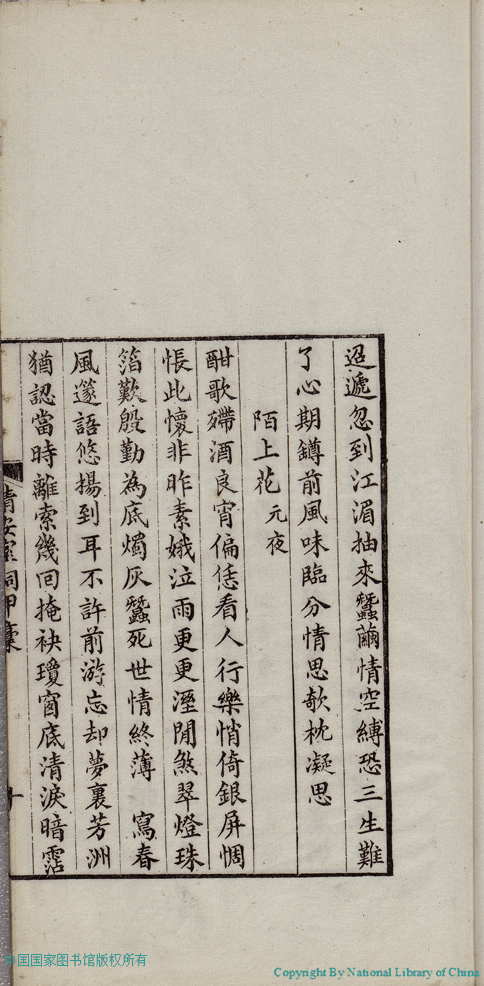 迢遞忽到江湄抽來蠶繭情空縛恐三生難
了心期鐏前風味臨分情思欹枕凝思
陌上花元夜
酣歌殢酒良宵偏恁看人行樂悄倚銀屏惆
悵此懷非昨素娥泣雨更更溼閒煞翠燈珠
箔歎殷勤為底燭灰蠶死世情終薄 寫春
風邃語悠揚到耳不許前游忘却夢裏芳洲
猶認當時離索幾回掩袂瓊窗底清淚暗霑
室詞甲稾
中国国家图书馆版权所有
Copyright By National Library of China